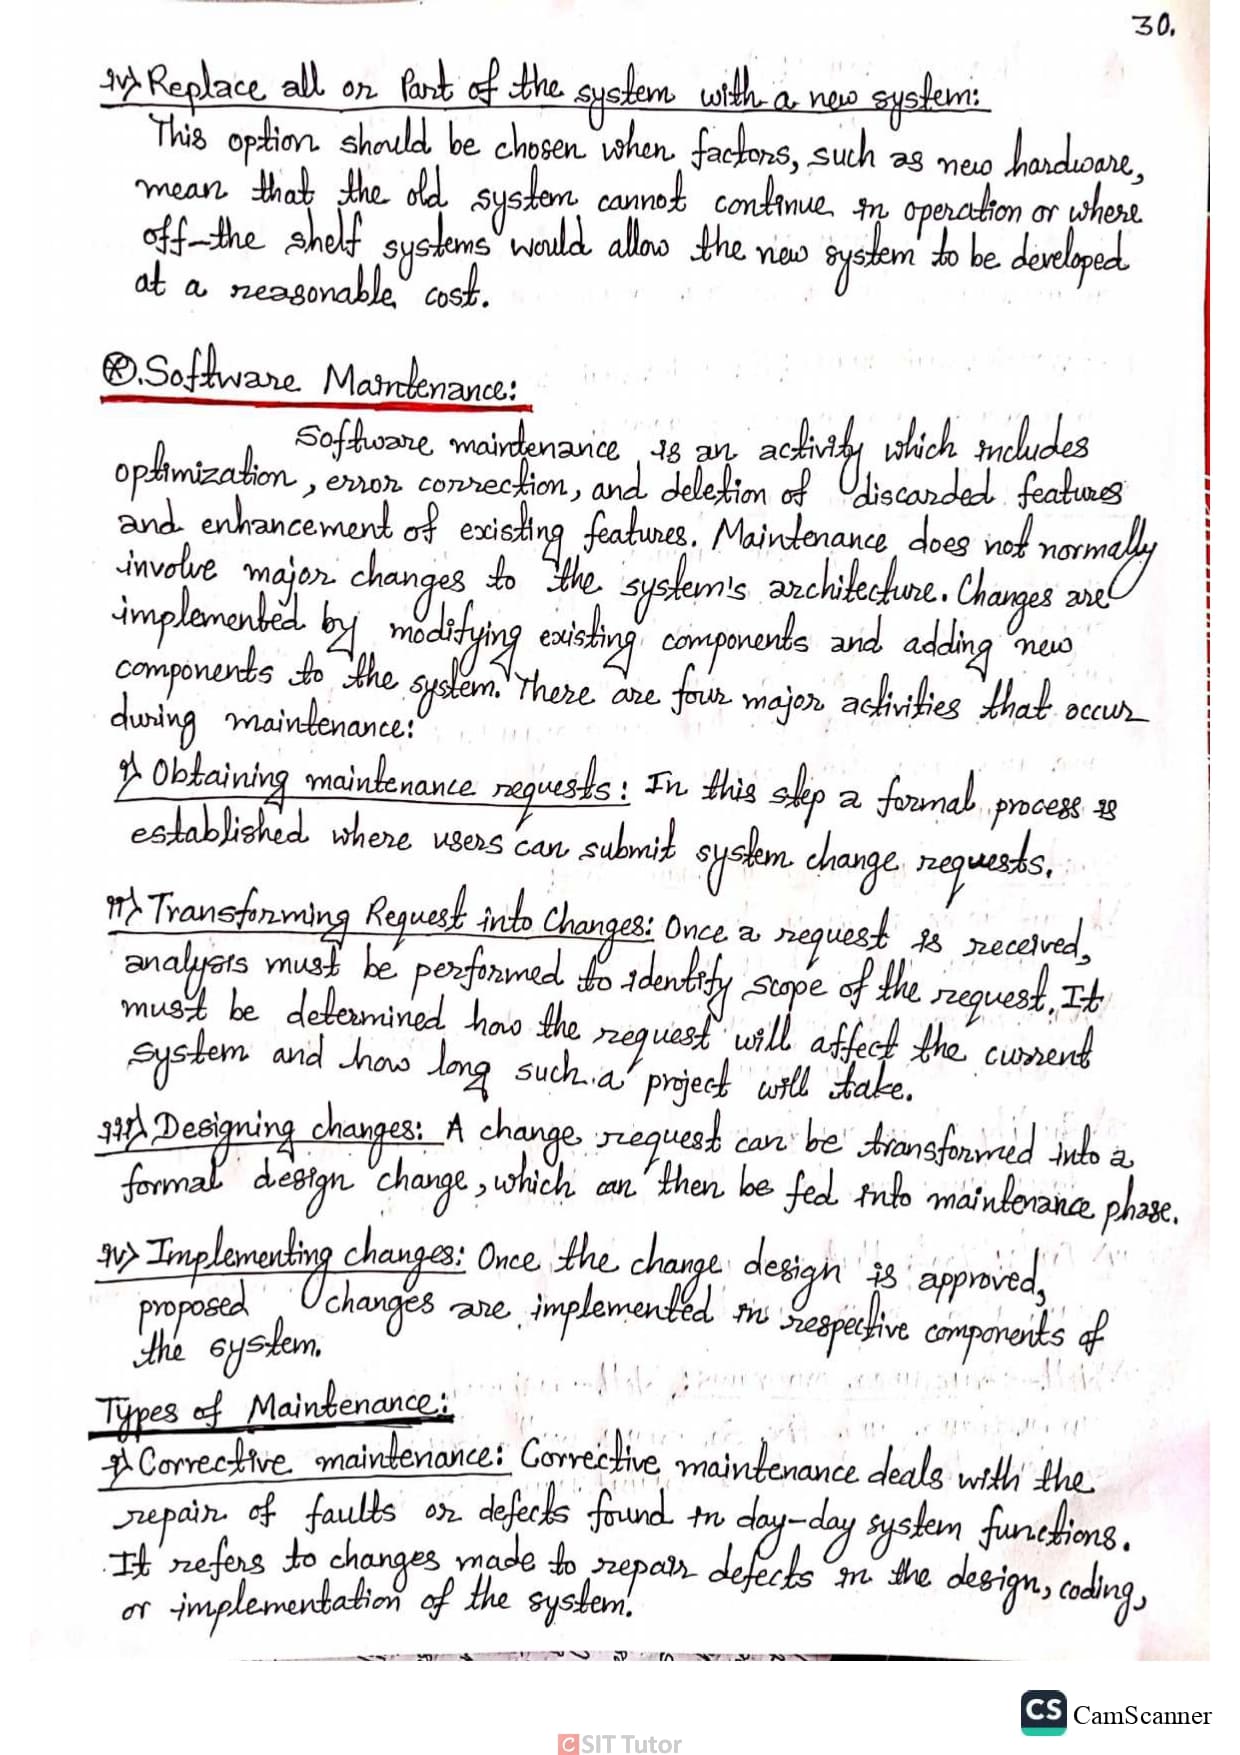 30.
iv) Replace all or Part of the system with a new system:
This option should be chosen when factors, such as new hardware,
mean that the old system cannot continue in operation or where
off-the shelf systems would allow the new system to be developed
at a reasonable cost.
⊛. Software Maintenance:
Software maintenance is an activity which includes
optimization, error correction, and deletion of discarded features
and enhancement of existing features. Maintenance does not normally
involve major changes to the system's architecture. Changes are
implemented by modifying existing components and adding new
components to the system. There are four major activities that occur
during maintenance:
i) Obtaining maintenance requests: In this step a formal process is
established where users can submit system change requests.
ii) Transforming Request into Changes: Once a request is received,
analysis must be performed to identify scope of the request. It
must be determined how the request will affect the current
system and how long such a project will take.
iii) Designing changes: A change request can be transformed into a
formal design change, which can then be fed into maintenance phase.
iv) Implementing changes: Once the change design is approved,
proposed changes are implemented in respective components of
the system.
Types of Maintenance:
i) Corrective maintenance: Corrective maintenance deals with the
repair of faults or defects found in day-day system functions.
It refers to changes made to repair defects in the design, coding,
or implementation of the system.
CS CamScanner
CSIT Tutor